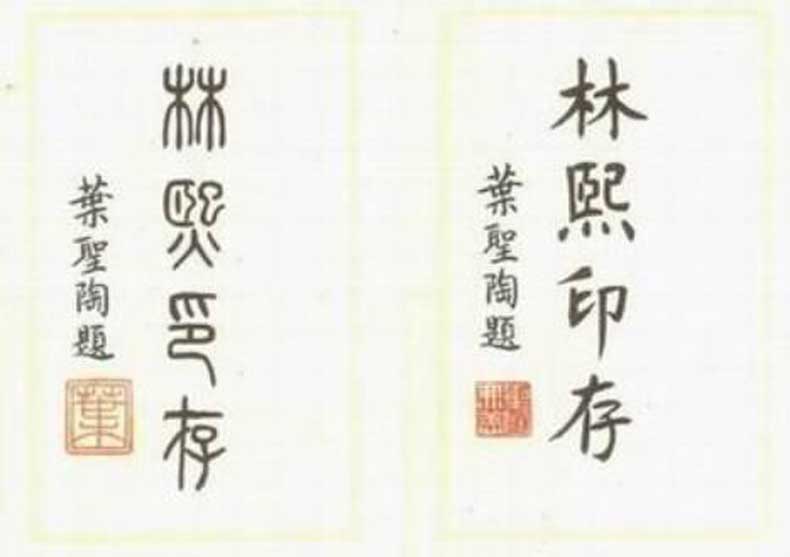 林熙印存
葉聖陶題
葉
林熙印存
葉聖陶題